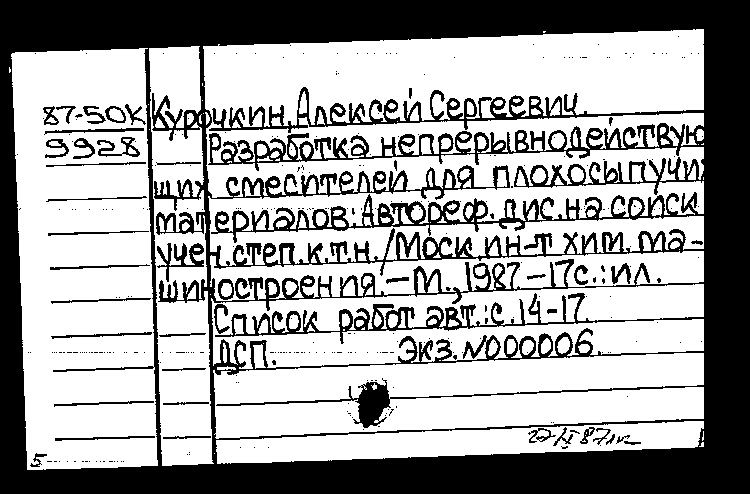 87-50К Курочкин, Алексей Сергеевич.
9928 Разработка непрерывнодействую
щих смесителей для плохосыпучих
материалов: Автореф. дис. на соиск
учен. степ. к.т.н. / Моск. ин-т хим. ма-
шиностроения. — М., 1987. — 17с.: ил.
Список работ авт.: с. 14-17
ДСП. Экз. N000006.
5